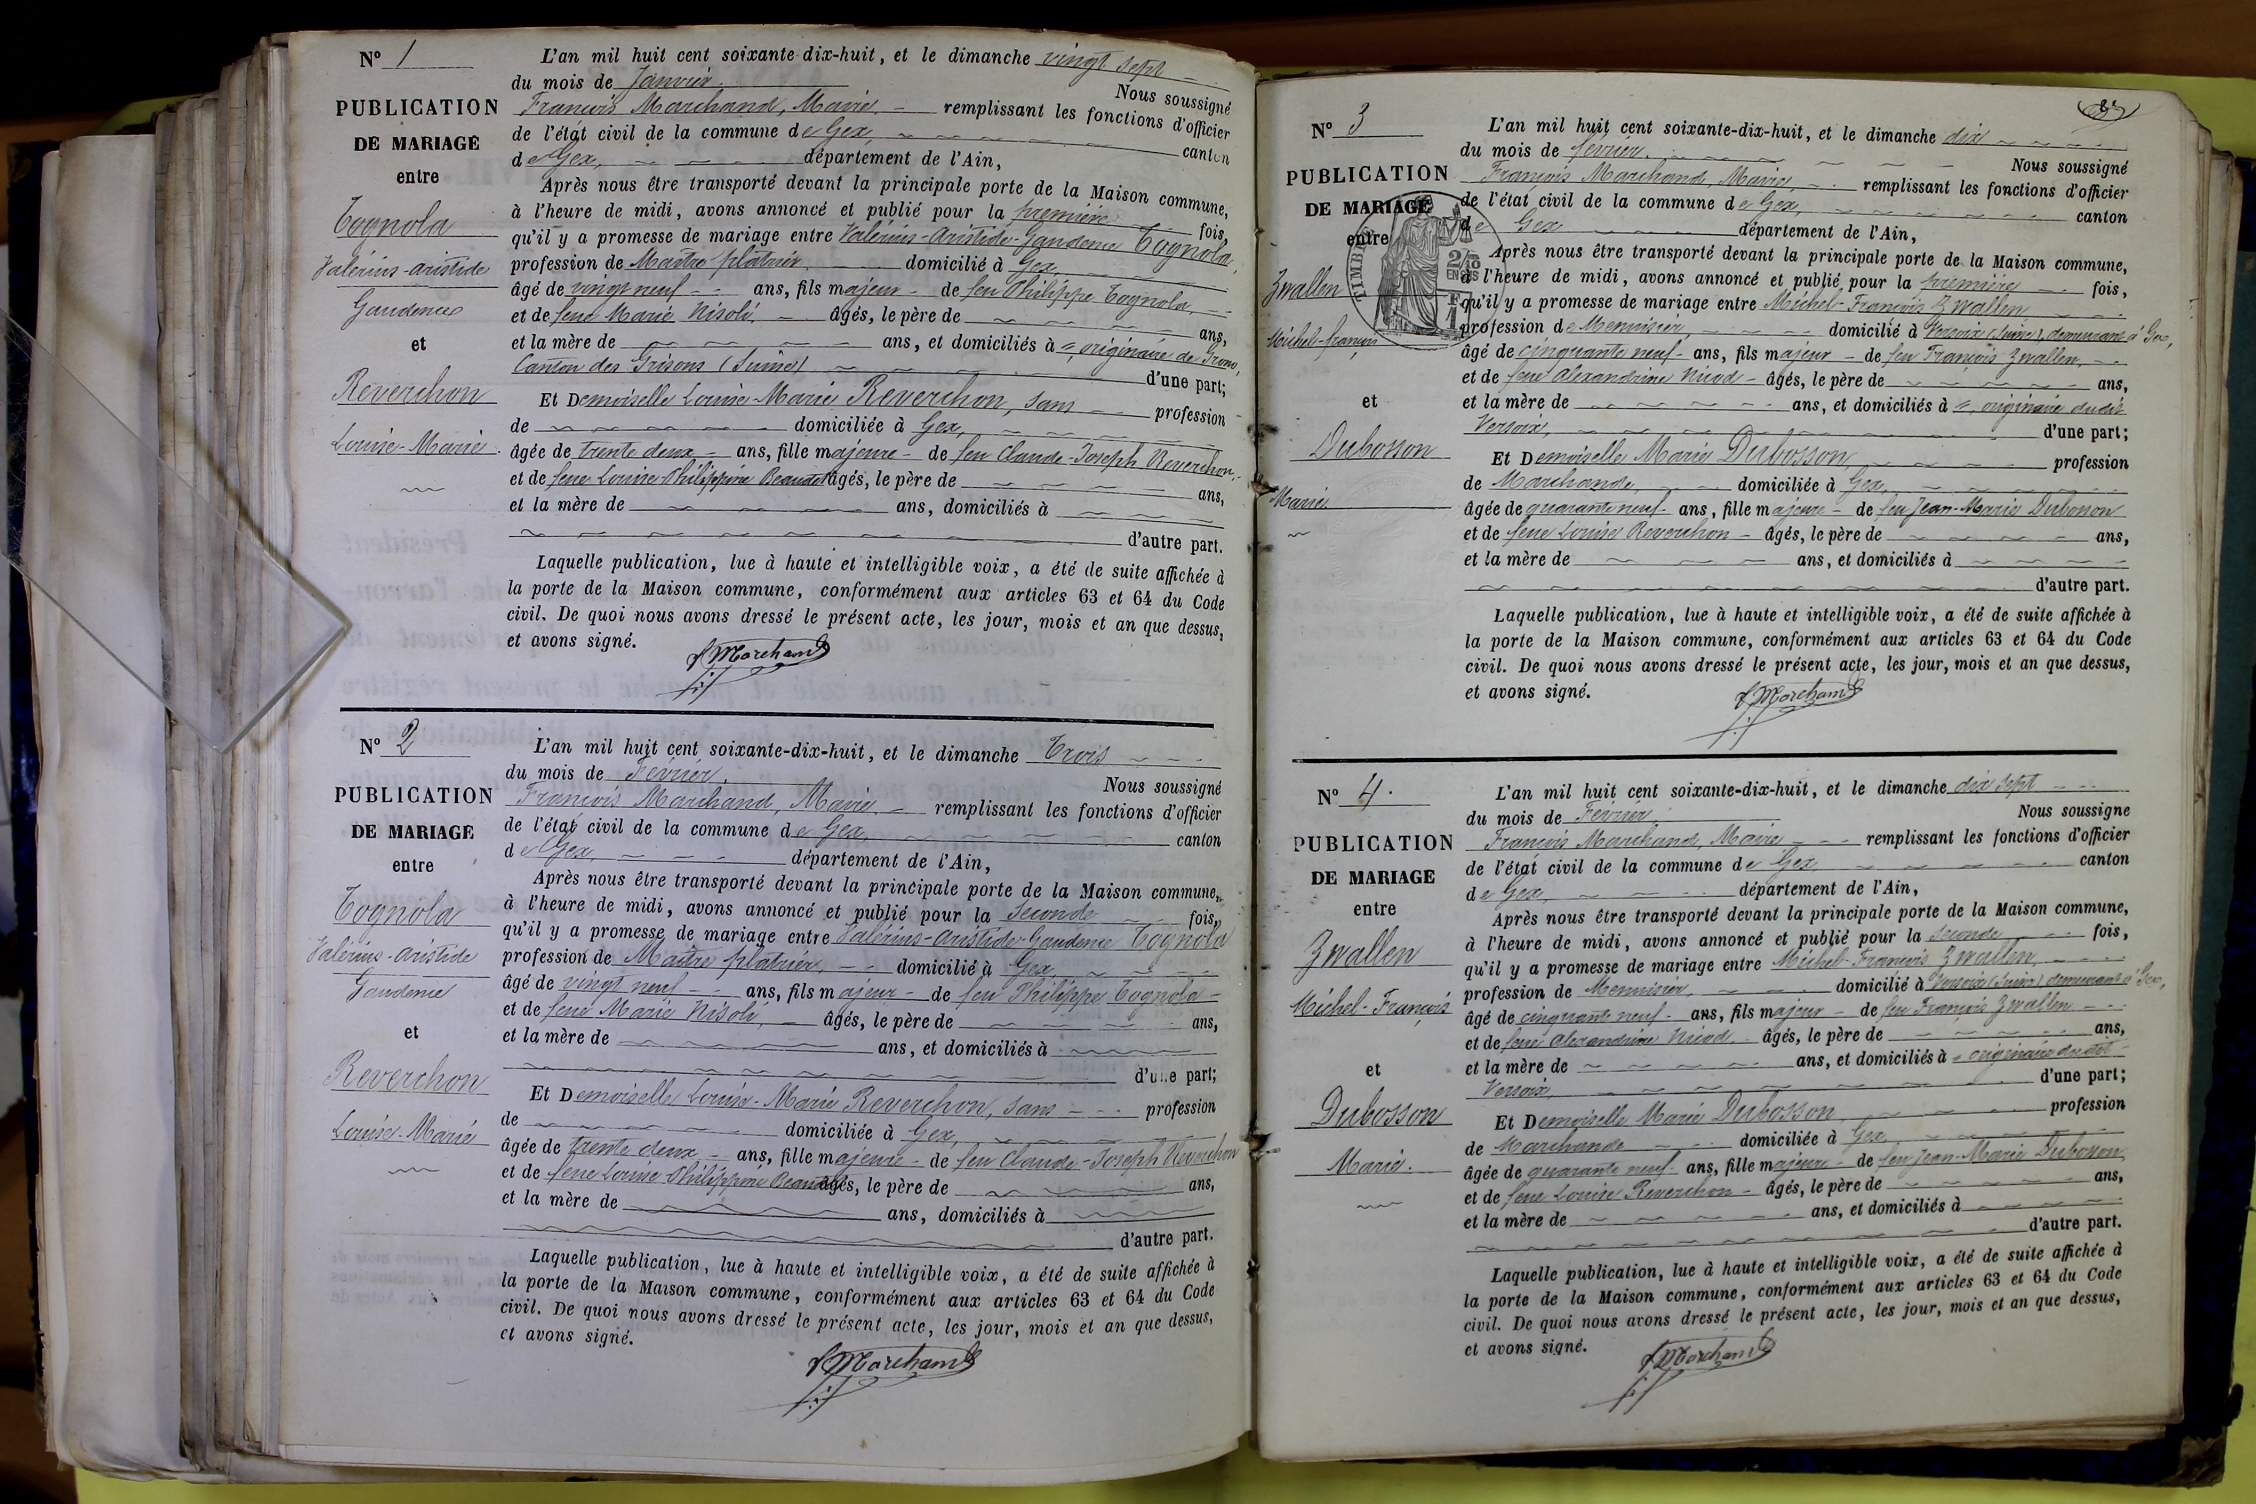 N° 1
PUBLICATION
DE MARIAGE
entre
Tognola
Valérius-Aristide
Gaudence
et
Reverchon
Louise-Marie
L'an mil huit cent soixante-dix-huit, et le dimanche vingt sept
du mois de Janvier. Nous soussigné
François Marchand, Maire remplissant les fonctions d'officier
de l'état civil de la commune de Gex, canton
de Gex, département de l'Ain,
Après nous être transporté devant la principale porte de la Maison commune,
à l'heure de midi, avons annoncé et publié pour la première fois,
qu'il y a promesse de mariage entre Valérius-Aristide-Gaudence Tognola,
profession de Maître plâtrier, domicilié à Gex,
âgé de vingt neuf ans, fils majeur de feu Philippe Tognola,
et de feue Marie Nisoli, âgés, le père de ans,
et la mère de ans, et domiciliés à ", originaire de Grono,
Canton des Grisons (Suisse) d'une part;
Et Demoiselle Louise-Marie Reverchon, sans profession
de domiciliée à Gex,
âgée de trente deux ans, fille majeure de feu Claude-Joseph Reverchon,
et de feue Louise Philippine Beaudet âgés, le père de ans,
et la mère de ans, domiciliés à
d'autre part.
Laquelle publication, lue à haute et intelligible voix, a été de suite affichée à
la porte de la Maison commune, conformément aux articles 63 et 64 du Code
civil. De quoi nous avons dressé le présent acte, les jour, mois et an que dessus,
et avons signé.
f Marchand
N° 2
PUBLICATION
DE MARIAGE
entre
Tognola
Valérius-Aristide
Gaudence
et
Reverchon
Louise-Marie
L'an mil huit cent soixante-dix-huit, et le dimanche Trois
du mois de Février. Nous soussigné
François Marchand, Maire remplissant les fonctions d'officier
de l'état civil de la commune de Gex, canton
de Gex, département de l'Ain,
Après nous être transporté devant la principale porte de la Maison commune,
à l'heure de midi, avons annoncé et publié pour la seconde fois,
qu'il y a promesse de mariage entre Valérius-Aristide-Gaudence Tognola
profession de Maître plâtrier, domicilié à Gex,
âgé de vingt neuf ans, fils majeur de feu Philippe Tognola
et de feue Marie Nisoli, âgés, le père de ans,
et la mère de ans, et domiciliés à
d'une part;
Et Demoiselle Louise-Marie Reverchon, sans profession
de domiciliée à Gex,
âgée de trente deux ans, fille majeure de feu Claude-Joseph Reverchon
et de feue Louise Philippine Beaudet âgés, le père de ans,
et la mère de ans, domiciliés à
d'autre part.
Laquelle publication, lue à haute et intelligible voix, a été de suite affichée à
la porte de la Maison commune, conformément aux articles 63 et 64 du Code
civil. De quoi nous avons dressé le présent acte, les jour, mois et an que dessus,
et avons signé.
f Marchand
N° 3
PUBLICATION
DE MARIAGE
entre
Zwallen
Michel-François
et
Dubosson
Marie
TIMBRE
2/10
EN SUS
L'an mil huit cent soixante-dix-huit, et le dimanche dix
du mois de février. Nous soussigné
François Marchand, Maire, remplissant les fonctions d'officier
de l'état civil de la commune de Gex, canton
de Gex département de l'Ain,
Après nous être transporté devant la principale porte de la Maison commune,
à l'heure de midi, avons annoncé et publié pour la première fois,
qu'il y a promesse de mariage entre Michel-François Zwallen
profession de Menuisier, domicilié à Versoix (Suisse), demeurant à Gex,
âgé de cinquante neuf ans, fils majeur de feu François Zwallen,
et de feue Alexandrine Nicod âgés, le père de ans,
et la mère de ans, et domiciliés à ", originaire dudit
Versoix, d'une part;
Et Demoiselle Marie Dubosson, profession
de Marchande, domiciliée à Gex,
âgée de quarante neuf ans, fille majeure de feu Jean-Marie Dubosson
et de feue Louise Reverchon âgés, le père de ans,
et la mère de ans, et domiciliés à
d'autre part.
Laquelle publication, lue à haute et intelligible voix, a été de suite affichée à
la porte de la Maison commune, conformément aux articles 63 et 64 du Code
civil. De quoi nous avons dressé le présent acte, les jour, mois et an que dessus,
et avons signé.
f Marchand
N° 4.
PUBLICATION
DE MARIAGE
entre
Zwallen
Michel-François
et
Dubosson
Marie.
L'an mil huit cent soixante-dix-huit, et le dimanche dix sept
du mois de Février. Nous soussigné
François Marchand, Maire remplissant les fonctions d'officier
de l'état civil de la commune de Gex, canton
de Gex, département de l'Ain,
Après nous être transporté devant la principale porte de la Maison commune,
à l'heure de midi, avons annoncé et publié pour la seconde fois,
qu'il y a promesse de mariage entre Michel-François Zwallen,
profession de Menuisier, domicilié à Versoix (Suisse) demeurant à Gex,
âgé de cinquante neuf ans, fils majeur de feu François Zwallen
et de feue Alexandrine Nicod âgés, le père de ans,
et la mère de ans, et domiciliés à " originaire dudit
Versoix, d'une part;
Et Demoiselle Marie Dubosson profession
de Marchande domiciliée à Gex
âgée de quarante neuf ans, fille majeure de feu Jean-Marie Dubosson
et de feue Louise Reverchon âgés, le père de ans,
et la mère de ans, et domiciliés à
d'autre part.
Laquelle publication, lue à haute et intelligible voix, a été de suite affichée à
la porte de la Maison commune, conformément aux articles 63 et 64 du Code
civil. De quoi nous avons dressé le présent acte, les jour, mois et an que dessus,
et avons signé.
f Marchand